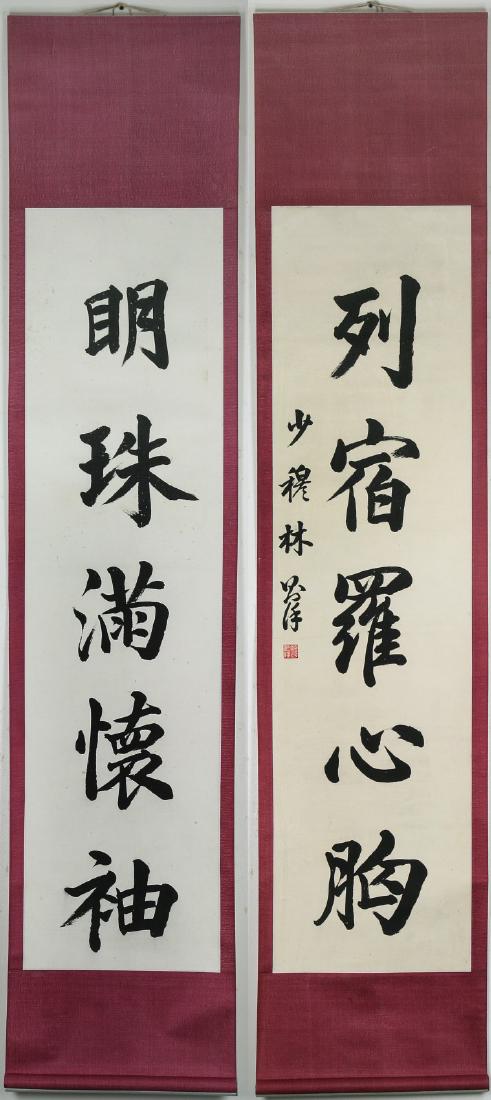 眀珠滿懷袖
列宿羅心胸
少穆林則徐